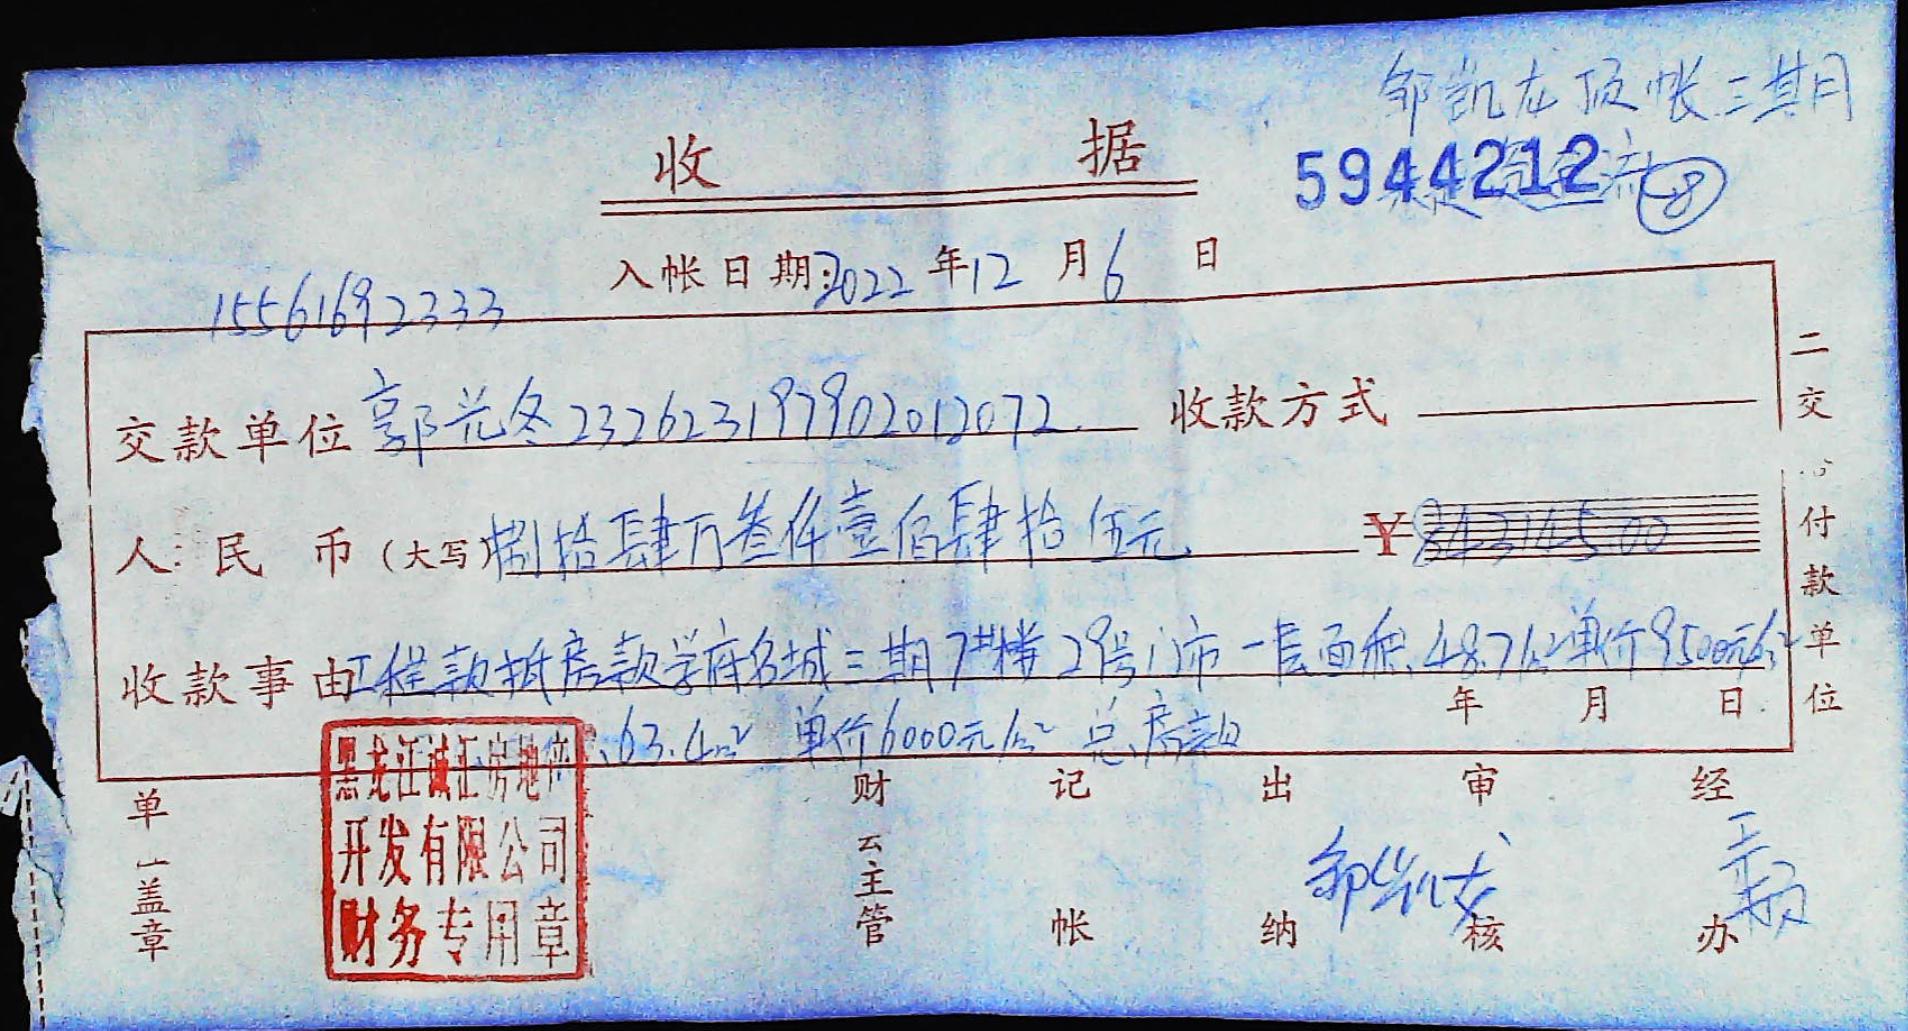 邹凯龙顶帐三期月
收 据
5944212 ⑧
入帐日期:2022年12月6日
15561692333
交款单位 郭光冬 232623197902012072. 收款方式
人民币(大写)捌拾肆万叁仟壹佰肆拾伍元 ¥843145.00
收款事由 工程款抵房款学府名城三期7#楼29号门市一层面积48.71m² 单价9500元/m²
63.4m² 单价6000元/m² 总房款
年 月 日
二交付款单位
黑龙江诚汇房地产
开发有限公司
财务专用章
单盖章 财主管 记帐 出纳 审核 邹凯龙 经办